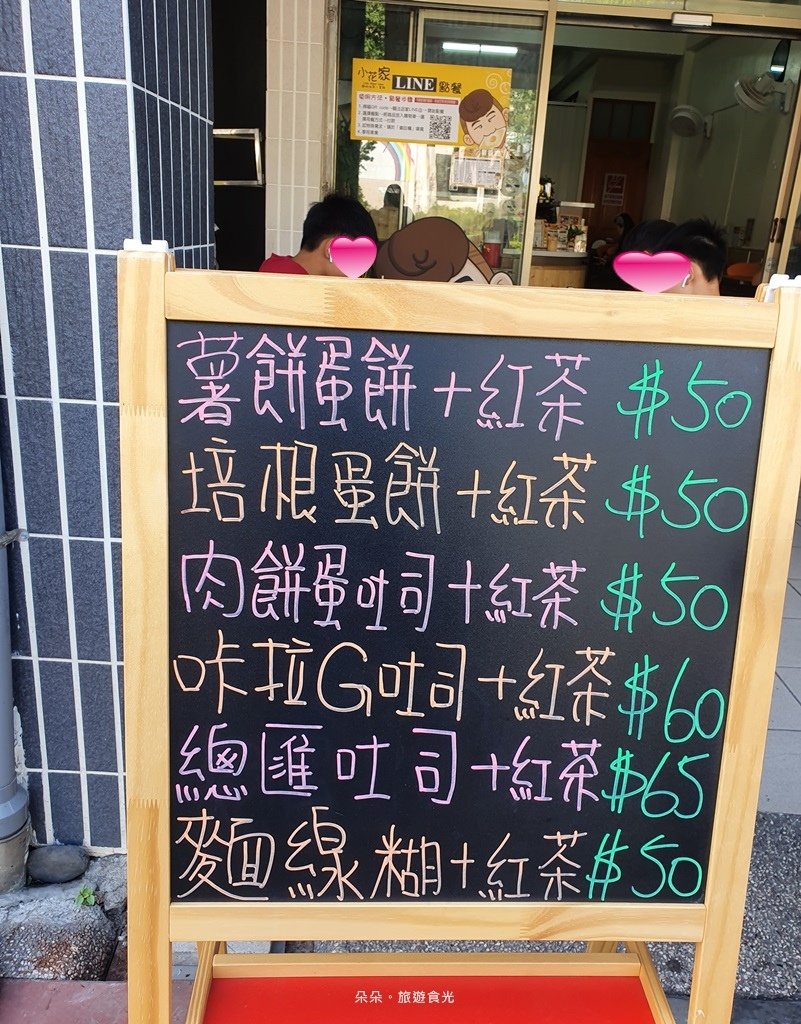 小花家 LINE 點餐
薯餅蛋餅+紅茶 $50
培根蛋餅+紅茶 $50
肉餅蛋吐司+紅茶 $50
咔拉G吐司+紅茶 $60
總匯吐司+紅茶 $65
麵線糊+紅茶 $50
朵朵。旅遊食光